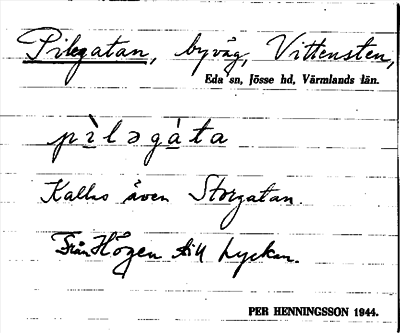 Pilegatan, byväg, Vittensten,
Eda sn, Jösse hd, Värmlands län.
pìləgàta
Kallas även Storgatan.
Från Högen till Lyckan.
PER HENNINGSSON 1944.